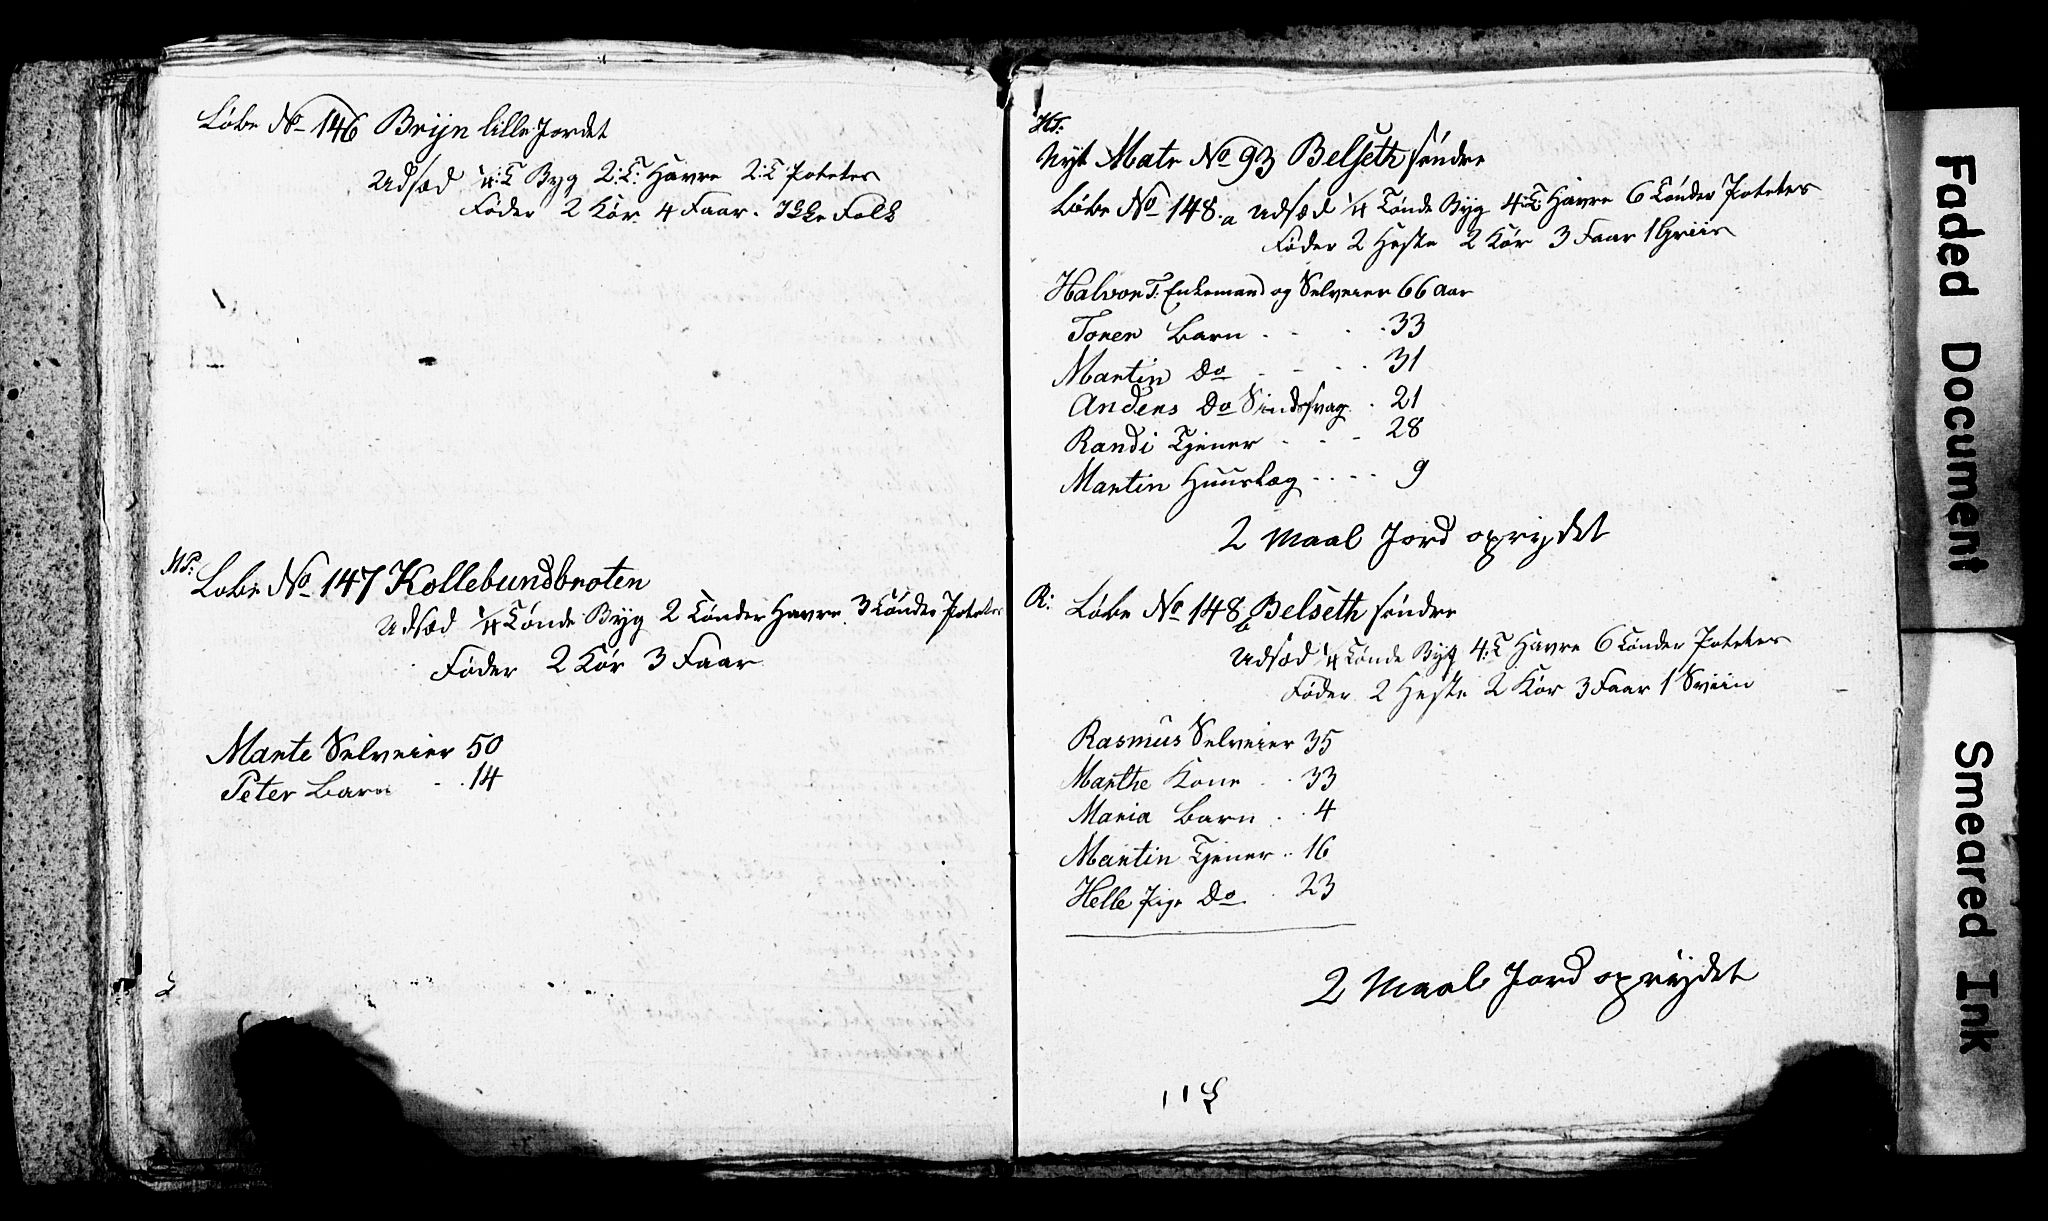 Løbe No 146 Bryn lille Jordet
Udsæd 1/4:T Byg 2:T: Havre 2:T Poteter
Føder 2 Kør 4 Faar. Ikke Folk
MP:
Løbe No 147 Kollebundbroten
Udsæd 1/4 Tønde Byg 2 Tønder Havre. 3 Tønder Poteter
Føder 2 Kør 3 Faar
Marte Selveier 50
Peter Barn - . 14
HT:
Nyt Matr No 93 Belseth søndre
Løbe No 148.a Udsæd 1/4 Tønde Byg 4:T: Havre 6 Tønder Poteter
Føder 2 Heste 2 Kør 3 Faar 1 Griis
Halvor T: Enkemand og Selveier 66 Aar
Torer Barn . - . . 33
Martin Do - - . . 31
Anders Do Sindssvag . 21
Randi Tjener - - - 28
Martin Huuslæg - - - - 9
2 Maal Jord oprydet
R: Løbe No 148 b Belseth søndre
Udsæd 1/4 Tønde Byg 4:T Havre 6 Tønder Poteter
Føder 2 Heste 2 Kør 3 Faar 1 Sviin
Rasmus Selveier 35
Marthe Kone . . 33
Maria Barn . . 4
Martin Tjener .. 16
Helle Pige Do . 23
2 Maal Jord oprydet
Faded Document
Smeared Ink